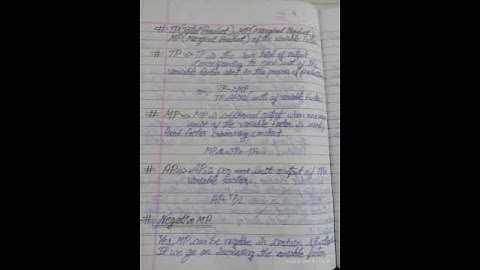 # TP (Total Product), MP (Marginal Product
MP (Marginal Product) of the variable
# TP => TP is the sum total of output
corresponding to each unit of the
variable factor used in the process of production
TP = ΣMP
unit of variable factor
# MP => MP is additional output when one more
unit of the variable factor is used,
fixed factor remaining constant.
MPn = TPn - TPn-1
# AP => AP is per unit output of the
variable factor.
AP = TP/L
# Negative MP
Yes, MP can be negative in certain situation
If we go on increasing the variable factor